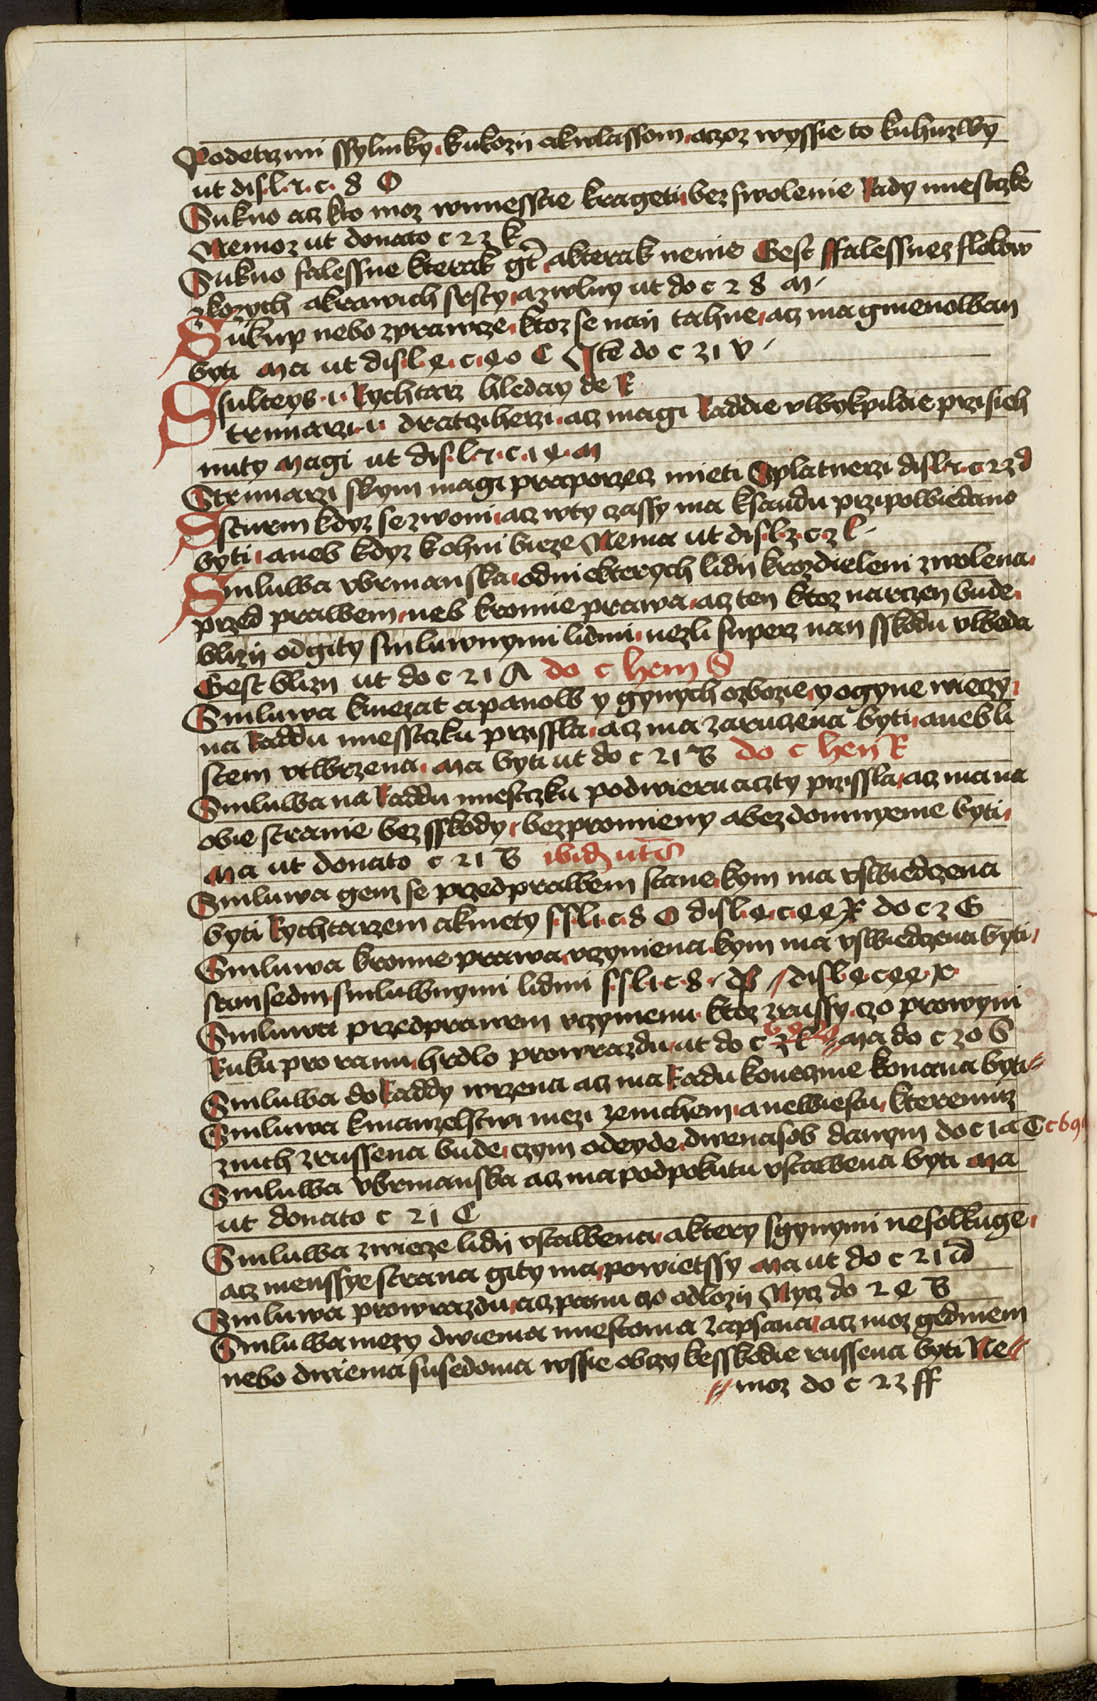 Podetrzmi ssylinky kukozij akwlassom aczoz wyssie to kuhuzlwy
ut dis l 2 c 8 O
Sukno acz kto moz wmiesscie krageti bez swolenie Rady miestczke
Nemoz ut donato c 2 3 k
Sukno falessne kterak gt akterak nenie Gest ffalessnez flokow
zkozych akrawich srsty azwlny ut do c 2 8 m
Sukup nebo zprawcze ktoz se nan tahne acz ma gmenowan
byti Ma ut dis l e c e o C Ite do c 31 v
Ssulteys i Rychtarz hleday de R
Strunarzi i dratcziherzi acz magi Raddie vlbykpildie przisieh
nuty Magi ut dis l 2 c i e m
Strunarzi skym magi praporzecz mieti Splatnerzi dis l 2 c 2 3 d
Ssturm kdyz se zwoni acz wty czassy ma ksaudu przipowiedano
byti aneb kdyz kohni bieze Nema ut dis l 3 c 3 l
Smluwa vbrmanska odniekterych lidij krozdieleni zwolena
przed prawem neb kromie prawa acz ten ktoz narczen bude
blizij odgity smluwnymi lidmi nezli superz nan sskodu vlweda
Gest blizij ut do c 2 1 A do c hem S
Smluwa kniezat a panow y gynych ozbozie y ogyne wieczy
na Raddu miestczku przissla acz ma zaruczena byti aneb li
stem vtwrzena Ma byti ut do c 2 1 B do c hen R
Smluwa na Raddu miestczku podwieru aczty przissla acz ma na
obie stranie bez sskody bezpromieny abez domnyenie byti
Ma ut donato c 2 1 B ibid ut S
Smluwa genz se przed prawem stane kym ma vswiedczena
byti Rychtarzem akmety s s l i c 8 O dis l e c e e X do c 3 G
Smluwa kromie prawa vczymena kym ma vswiedczena byti
sam sedm smluwnymi lidmi s s l i c 8 P dis l e c e e X
Smluwu przedprawem vczymenu ktoz zrussy czo prowyni
Ruku pro ranu hrdlo prowrazdu ut do c 3 R Ma do c 30 S
Smluwa do Raddy wrzena acz ma Radu koneczmie konana byti
Smluwa kmanzelstwu mezi zenichem anewiestu kteremuz
znich zrussena bude czym odeyde dwenasob danym do c 1 a T c 69
Smluwa vbrmanska acz ma podpokutu vstawena byti Ma
ut donato c 2 1 C
Smluwa zwieze lidij vstawena aktery sgynymi nesolkuge
acz menssye strana gity ma powietssy Ma ut do c 2 1 D
Smluwa prowrazdu acz panu czo odlozij Nycz do 2 e B
Smluwa mezy dwiema miestoma zapsana acz moz gedniem
nebo dwiema susedoma wssie obczy kesskodie russena byti Ne
moz do c 2 3 ff